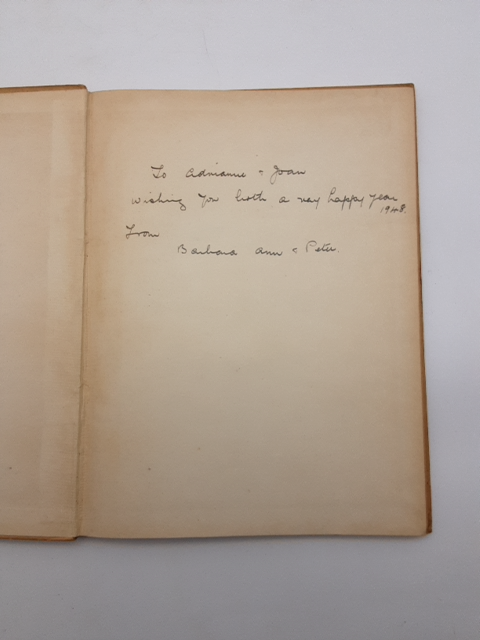 To Adrianne & Joan
Wishing you both a very happy year
1948.
From
Barbara Ann & Peter.